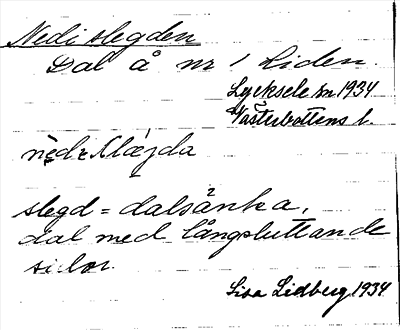 Nedi slegden
Dal å nr 1 Liden.
Lycksele sn 1934
Västerbottens l.
slegd = dalsänka,
dal med långsluttande
sidor.
Lisa Lidberg 1934